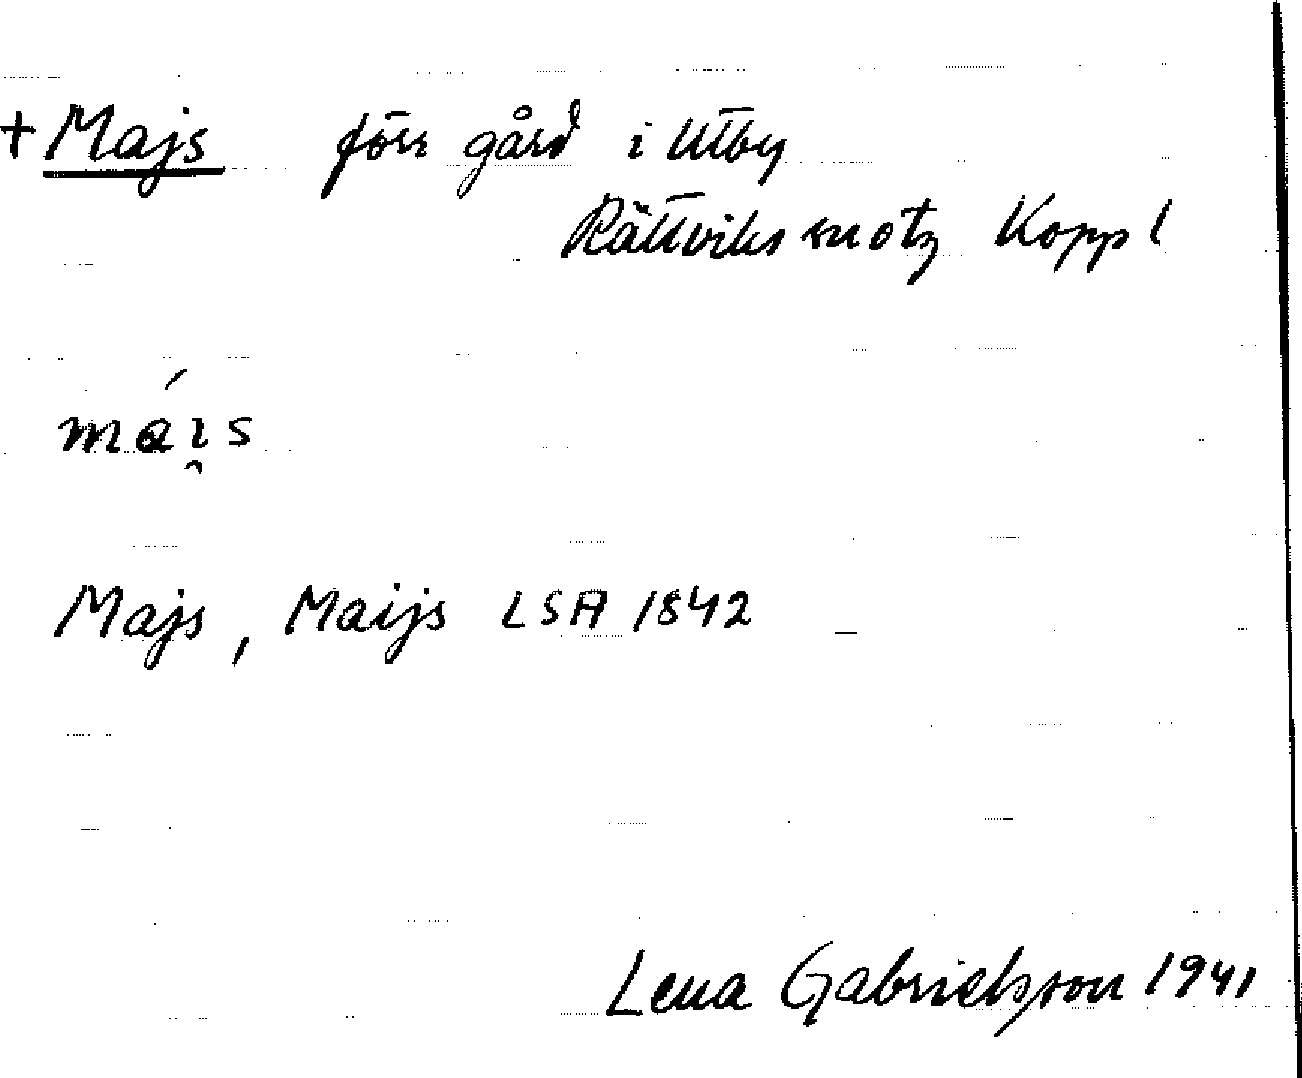 + Majs förr gård i Utby
Rättviks sn otg Koppl
má̀i̯s
Majs, Maijs LSA 1842
Lena Gabrielsson 1941